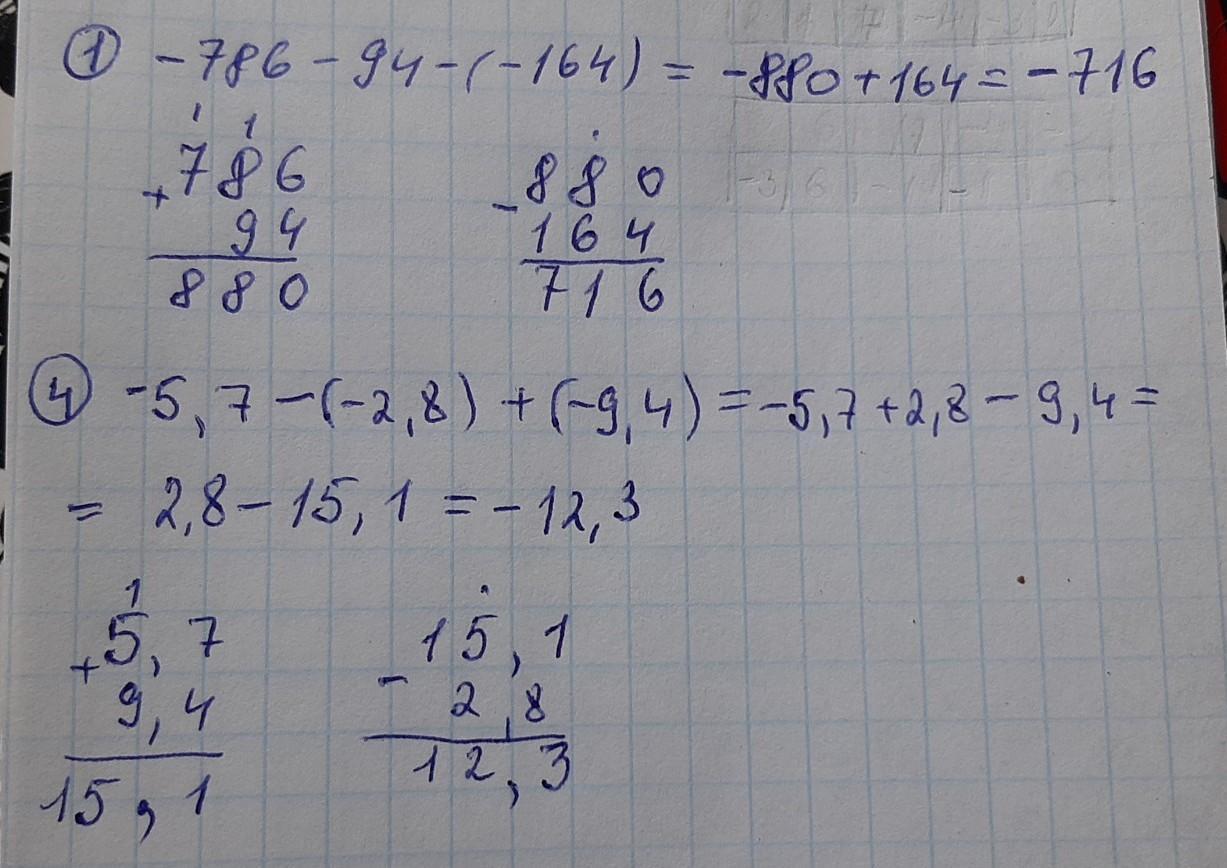 ① -786 - 94 - (-164) = -880 + 164 = -716
1 1
786
+
94
880
.
880
-
164
716
④ -5,7 - (-2,8) + (-9,4) = -5,7 + 2,8 - 9,4 =
= 2,8 - 15,1 = -12,3
1
5,7
+
9,4
15,1
.
15,1
-
2,8
12,3